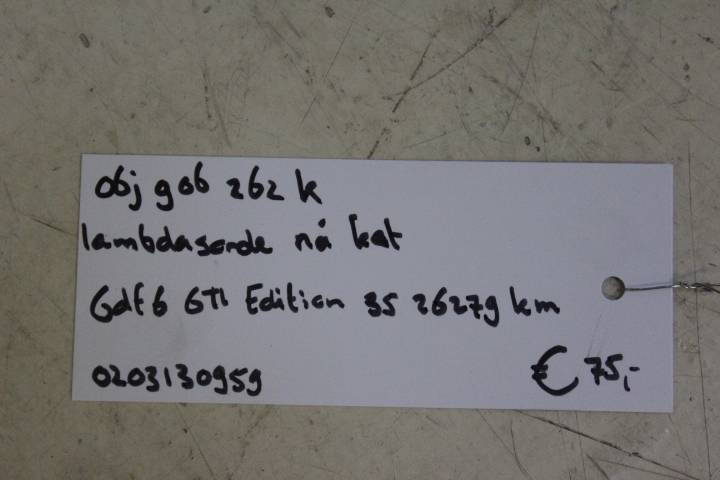 06j 906 262 k
lambdasonde ná kat
Golf 6 GTI Edition 35 26279 km
0203130959
€ 75,-